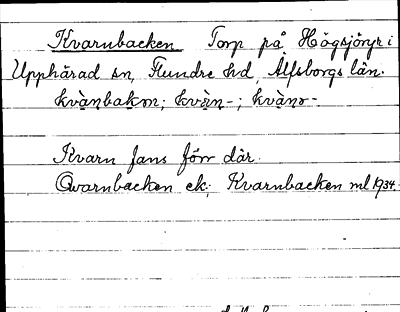 Kvarnbacken Torp på Högsjöryr i
Upphärad sn, Flundre hd, Älfsborgs län.
kvànbakən; kvàn-; kvànə-
Kvarn fans förr där.
Qvarnbacken ek; Kvarnbacken ml 1934.